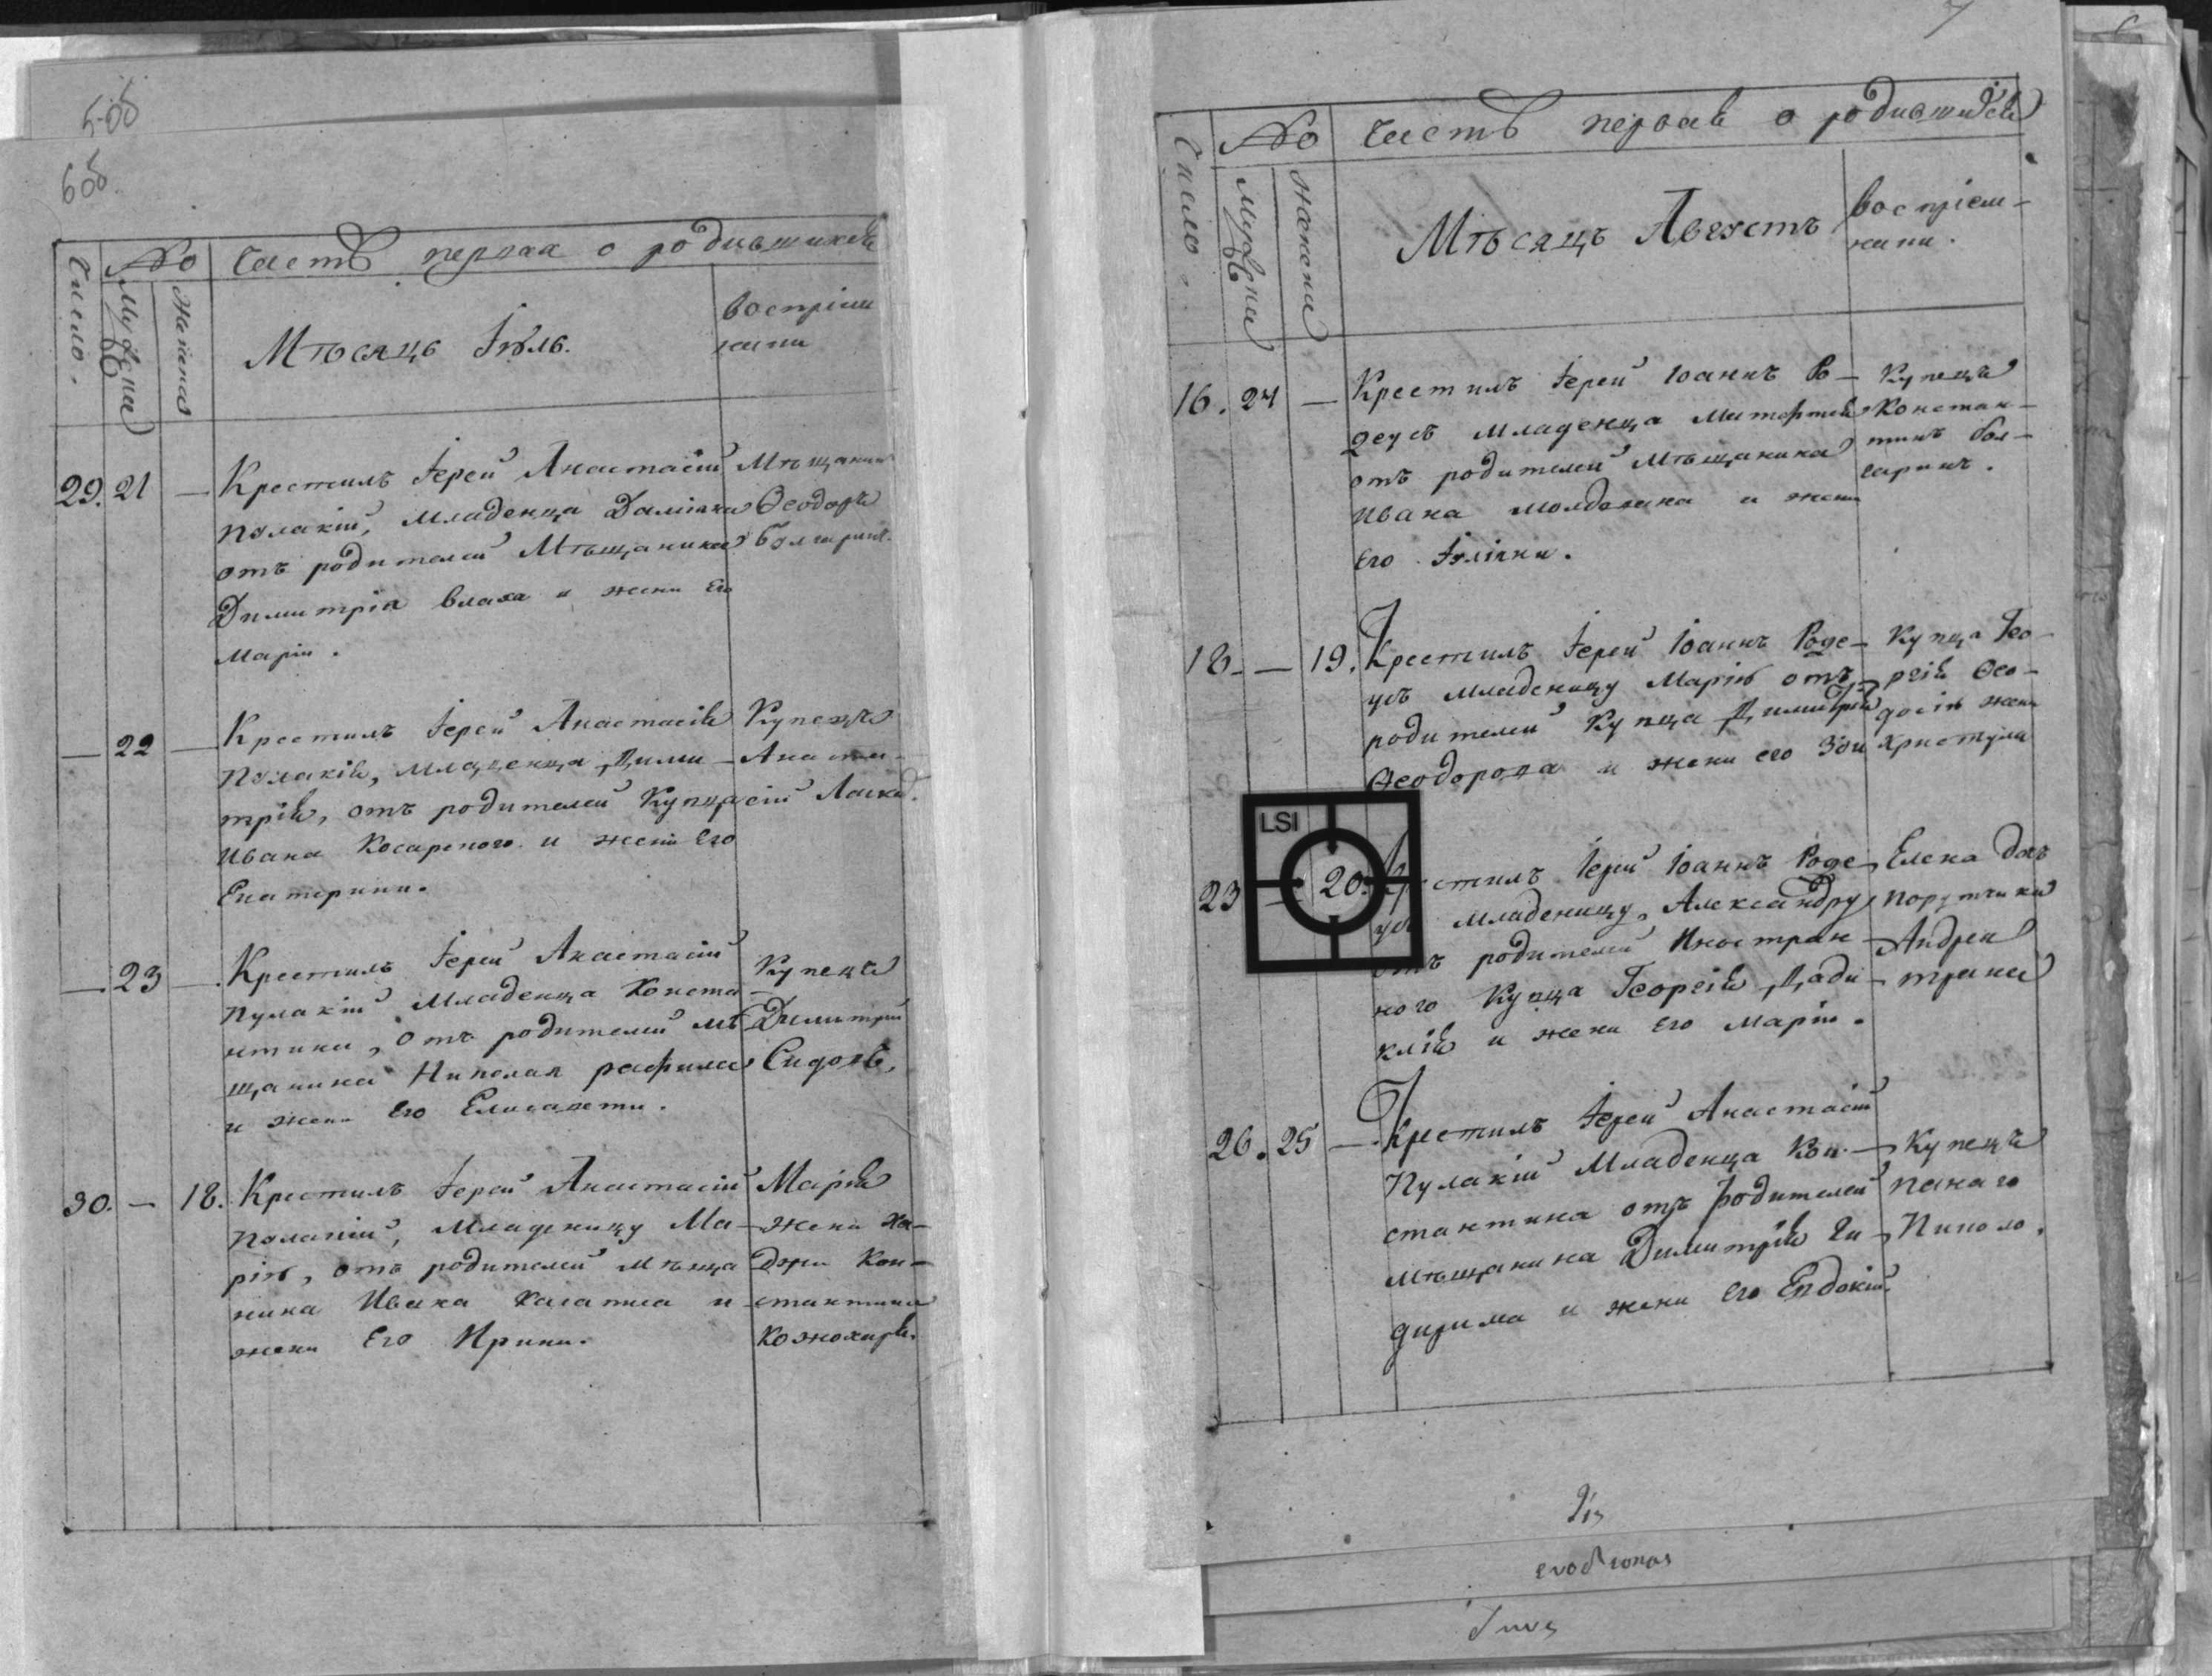 5об
6об.
Число.
No
Мужеска
Женска
Часть первая о родившихся
Мѣсяцъ Іюль.
воспріем
ники
29. 21 —
Крестилъ Іерей Анастасій
Пулакій, Младенца
отъ родителей Мѣщанина
Димитрія влаха и жени Его
Маріи.
Мѣщанин
Ѳеодоръ
Болгаринъ.
— 22 —
Крестилъ Іерей Анастасій
Пулакій, младенца Дими-
трія, отъ родителей Купца
Ивана Косарского и жени Его
Екатерини.
Купецъ
Анаста-
сій
— 23 —
Крестилъ Іерей Анастасій
Пулакій Младенца Конста
нтина, отъ родителей мѣ
щанина Николая
и жени Его Елисавети.
Купецъ
Димитрій
30. — 18.
Крестилъ Іерей Анастасій
Пулакій, Младеницу Ма-
рію, отъ родителей мѣща
нина Ивана и
жени Его Ирини.
Марія
жена Ха-
джи Кон-
стантина
7
Число.
No
Мужеска
Женска
Часть первая о родившихся
Мѣсяцъ Августъ
воспріем-
ники.
16. 24 —
Крестилъ Іерей Іоаннъ Ро-
десъ младенца
отъ родителей Мѣщанина
Ивана молдована и жени
Его
Купецъ
Констан-
тинъ Бол-
гаринъ.
18 — 19.
Крестилъ Іерей Іоаннъ Роде-
съ младеницу Марію отъ
родителей Купца Димитрія
Ѳеодорова и жени его Зои
Купца Гео-
ргія Ѳео-
досія жена
Христула
LSI
23 — 20.
Крестилъ Іерей Іоаннъ Роде-
съ младеницу, Александру,
отъ родителей Иностран-
ного Купца Георгія
и жени Его Маріи.
Елена дочь
порутчика
Андрея
26. 25 —
Крестилъ Іерей Анастасій
Пулакій Младенца Кон-
стантина отъ родителей
мѣщанина Димитрія
и жени Его Евдокіи.
Купецъ